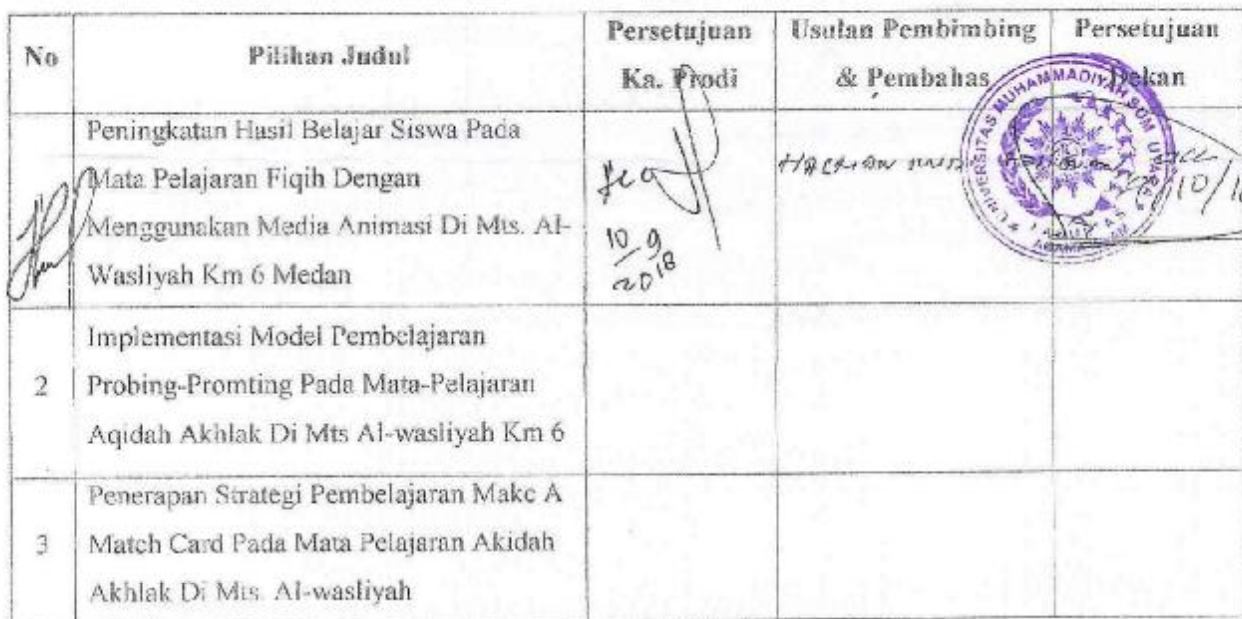 No
Pilihan Judul
Persetujuan
Ka. Prodi
Usulan Pembimbing
& Pembahas
Persetujuan
Dekan
Peningkatan Hasil Belajar Siswa Pada
Mata Pelajaran Fiqih Dengan
Menggunakan Media Animasi Di Mts. Al-
Wasliyah Km 6 Medan
10/9
2018
UNIVERSITAS MUHAMMADIYAH SUM UTARA
FAKULTAS
AGAMA ISLAM
2
Implementasi Model Pembelajaran
Probing-Promting Pada Mata-Pelajaran
Aqidah Akhlak Di Mts Al-wasliyah Km 6
3
Penerapan Strategi Pembelajaran Make A
Match Card Pada Mata Pelajaran Akidah
Akhlak Di Mts. Al-wasliyah